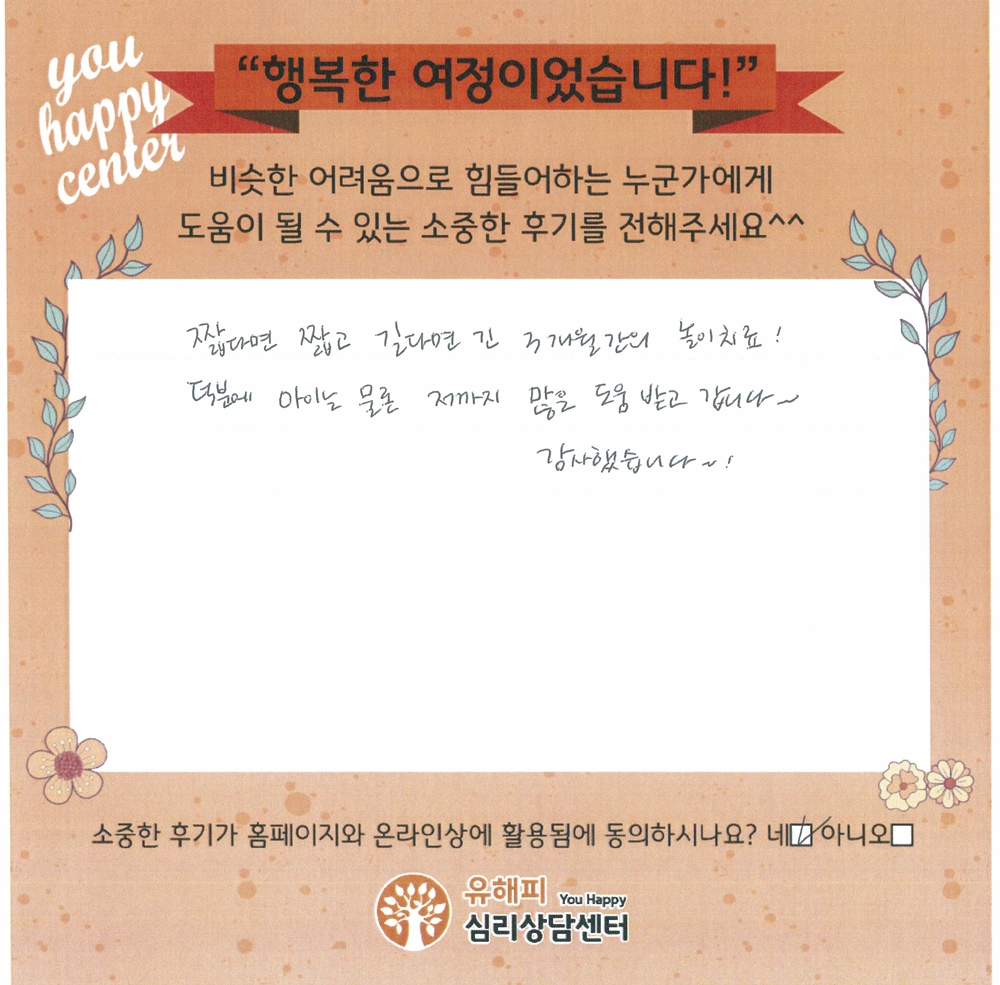 you
happy
center
“행복한 여정이었습니다!”
비슷한 어려움으로 힘들어하는 누군가에게
도움이 될 수 있는 소중한 후기를 전해주세요^^
짧다면 짧고 길다면 긴 3개월간의 놀이치료!
덕분에 아이는 물론 저까지 많은 도움 받고 갑니다~
감사했습니다~!
소중한 후기가 홈페이지와 온라인상에 활용됨에 동의하시나요? 네☑ 아니오☐
유해피 You Happy
심리상담센터